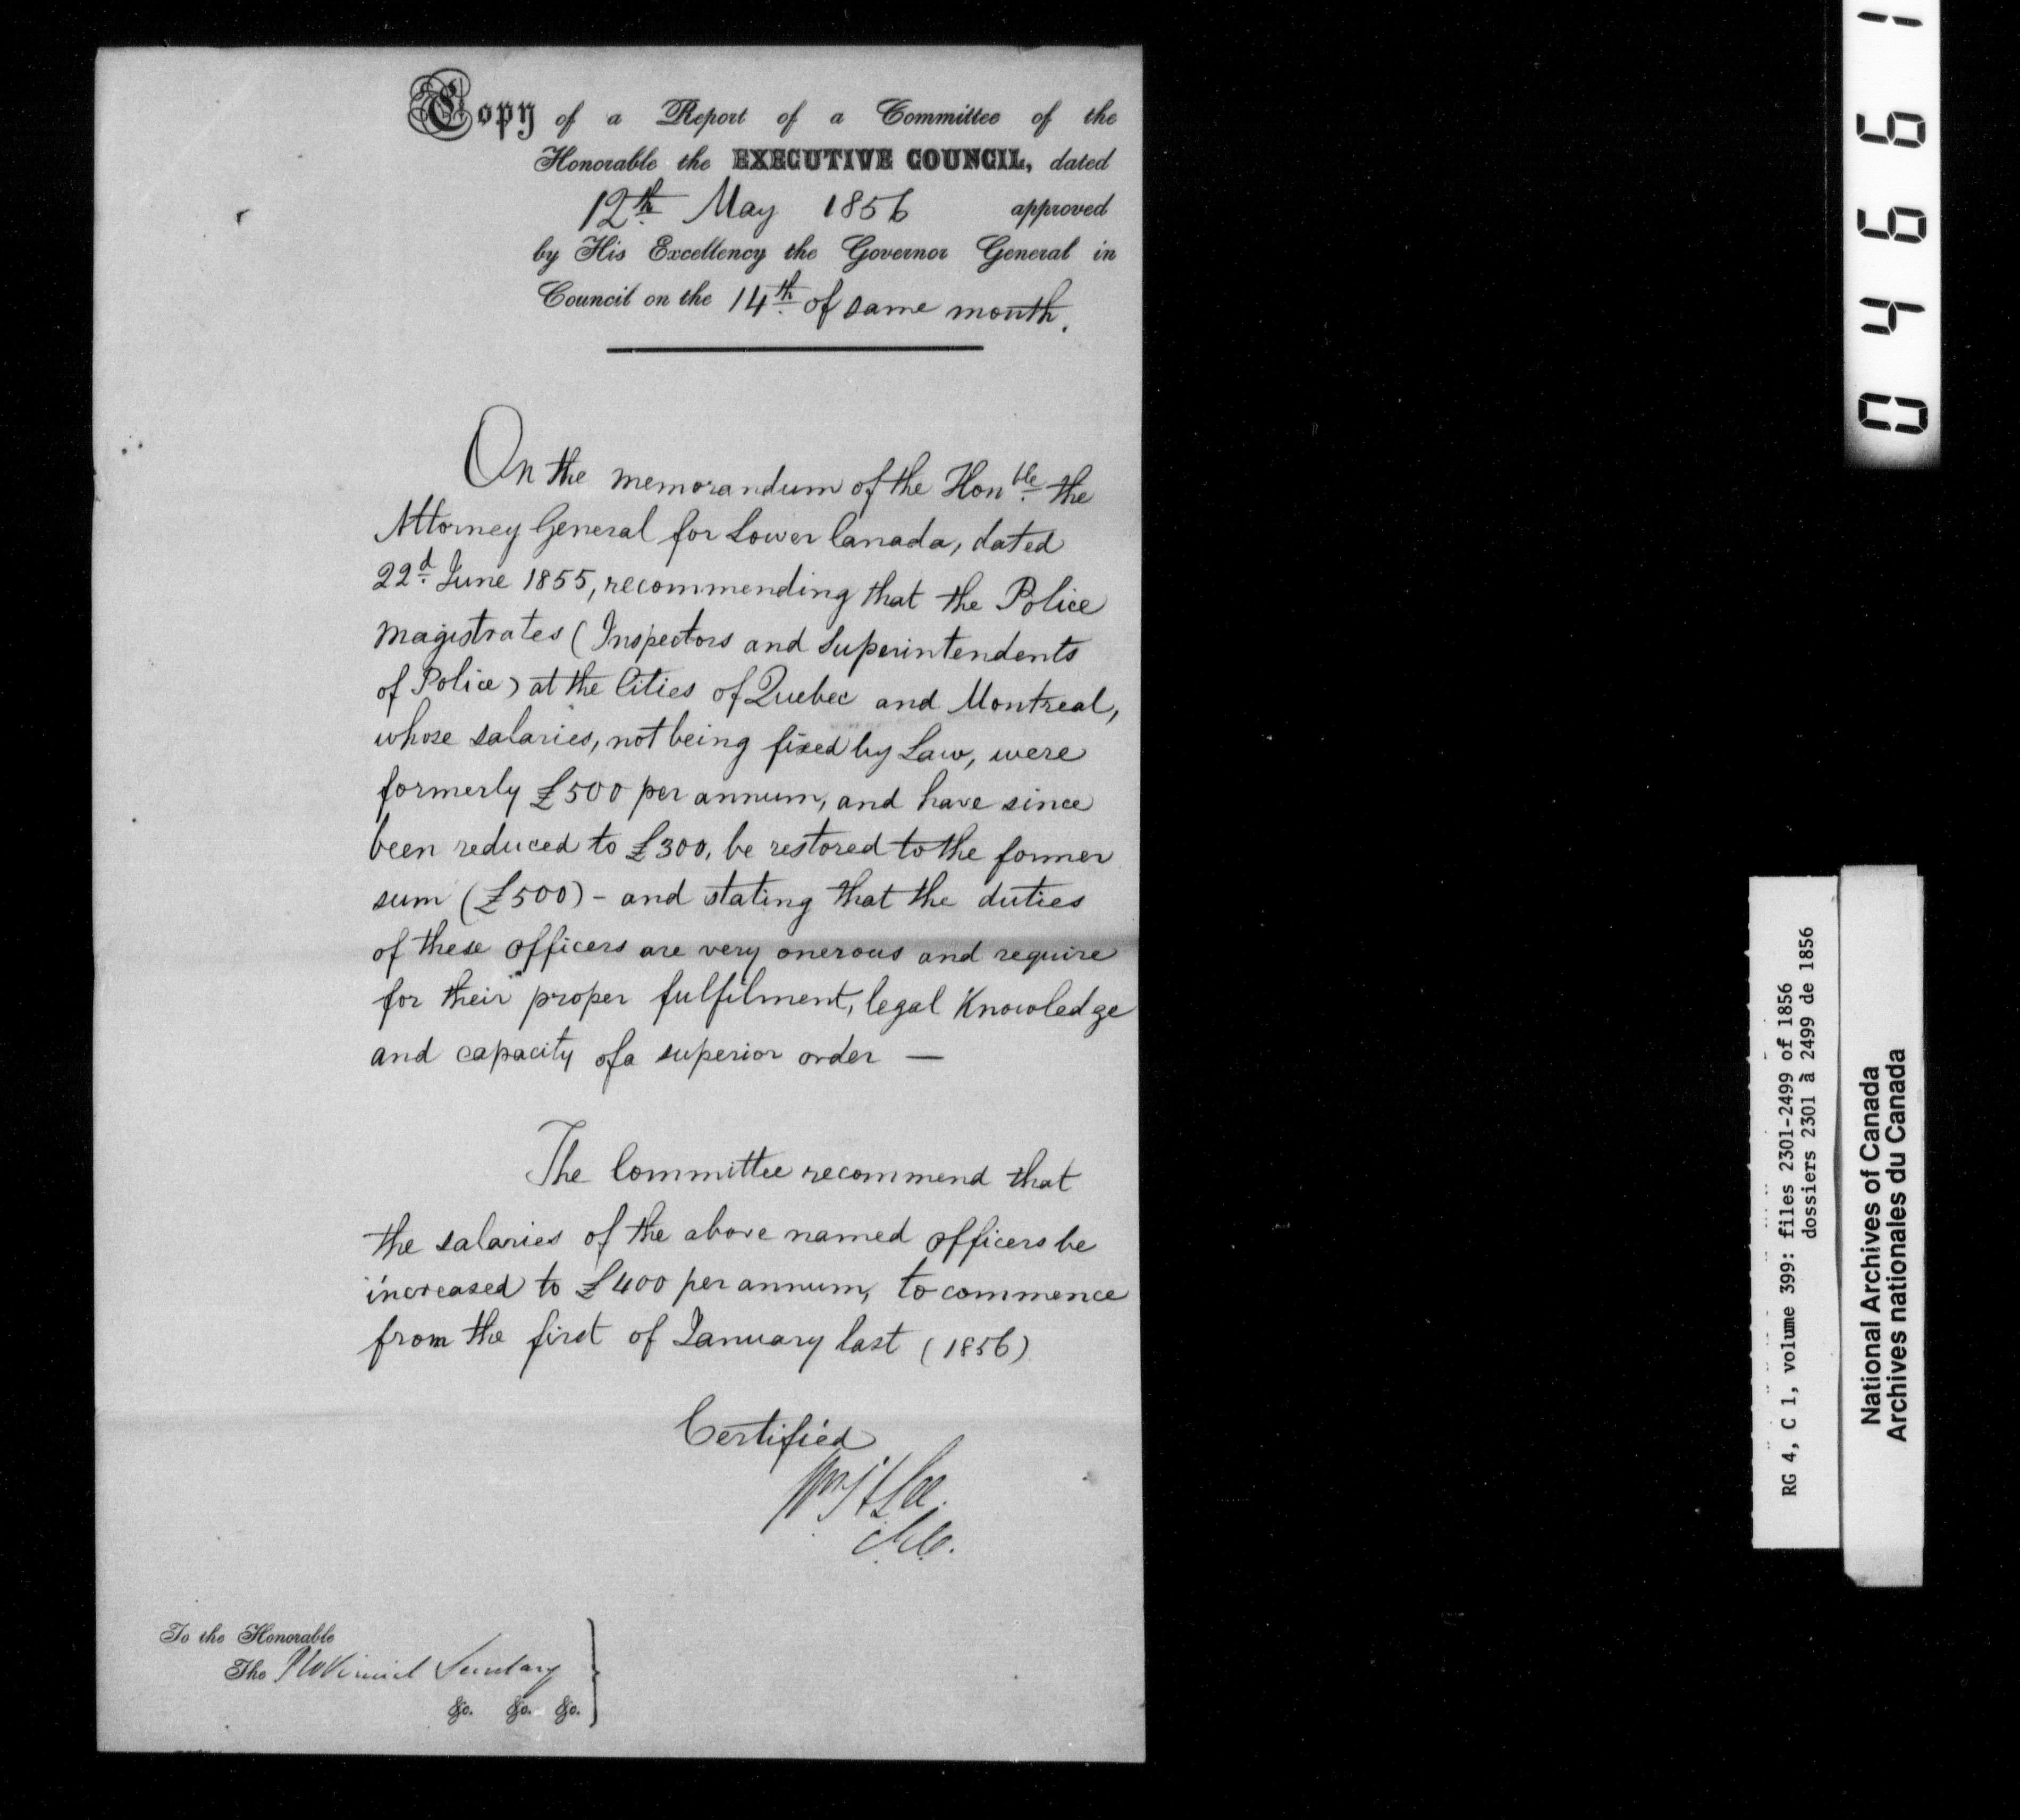 Copy of a Report of a Committee of the
Honorable the EXECUTIVE COUNCIL, dated
12th May 1856 approved
by His Excellency the Governor General in
Council on the 14th of same month.
On the memorandum of the Honble the
Attorney General for Lower Canada, dated
22d June 1855, recommending that the Police
Magistrates (Inspectors and Superintendents
of Police) at the Cities of Quebec and Montreal,
whose salaries, not being fixed by Law, were
formerly £500 per annum, and have since
been reduced to £300, be restored to the former
sum (£500) - and stating that the duties
of these officers are very onerous and require
for their proper fulfilment, legal Knowledge
and capacity of a superior order —
The Committee recommend that
the salaries of the above named officers be
increased to £400 per annum, to commence
from the first of January last (1856)
Certified
Wm H Lee
To the Honorable
The Provincial Secretary
&c. &c. &c.
04661
RG 4, C 1, volume 399: files 2301-2499 of 1856
dossiers 2301 à 2499 de 1856
National Archives of Canada
Archives nationales du Canada